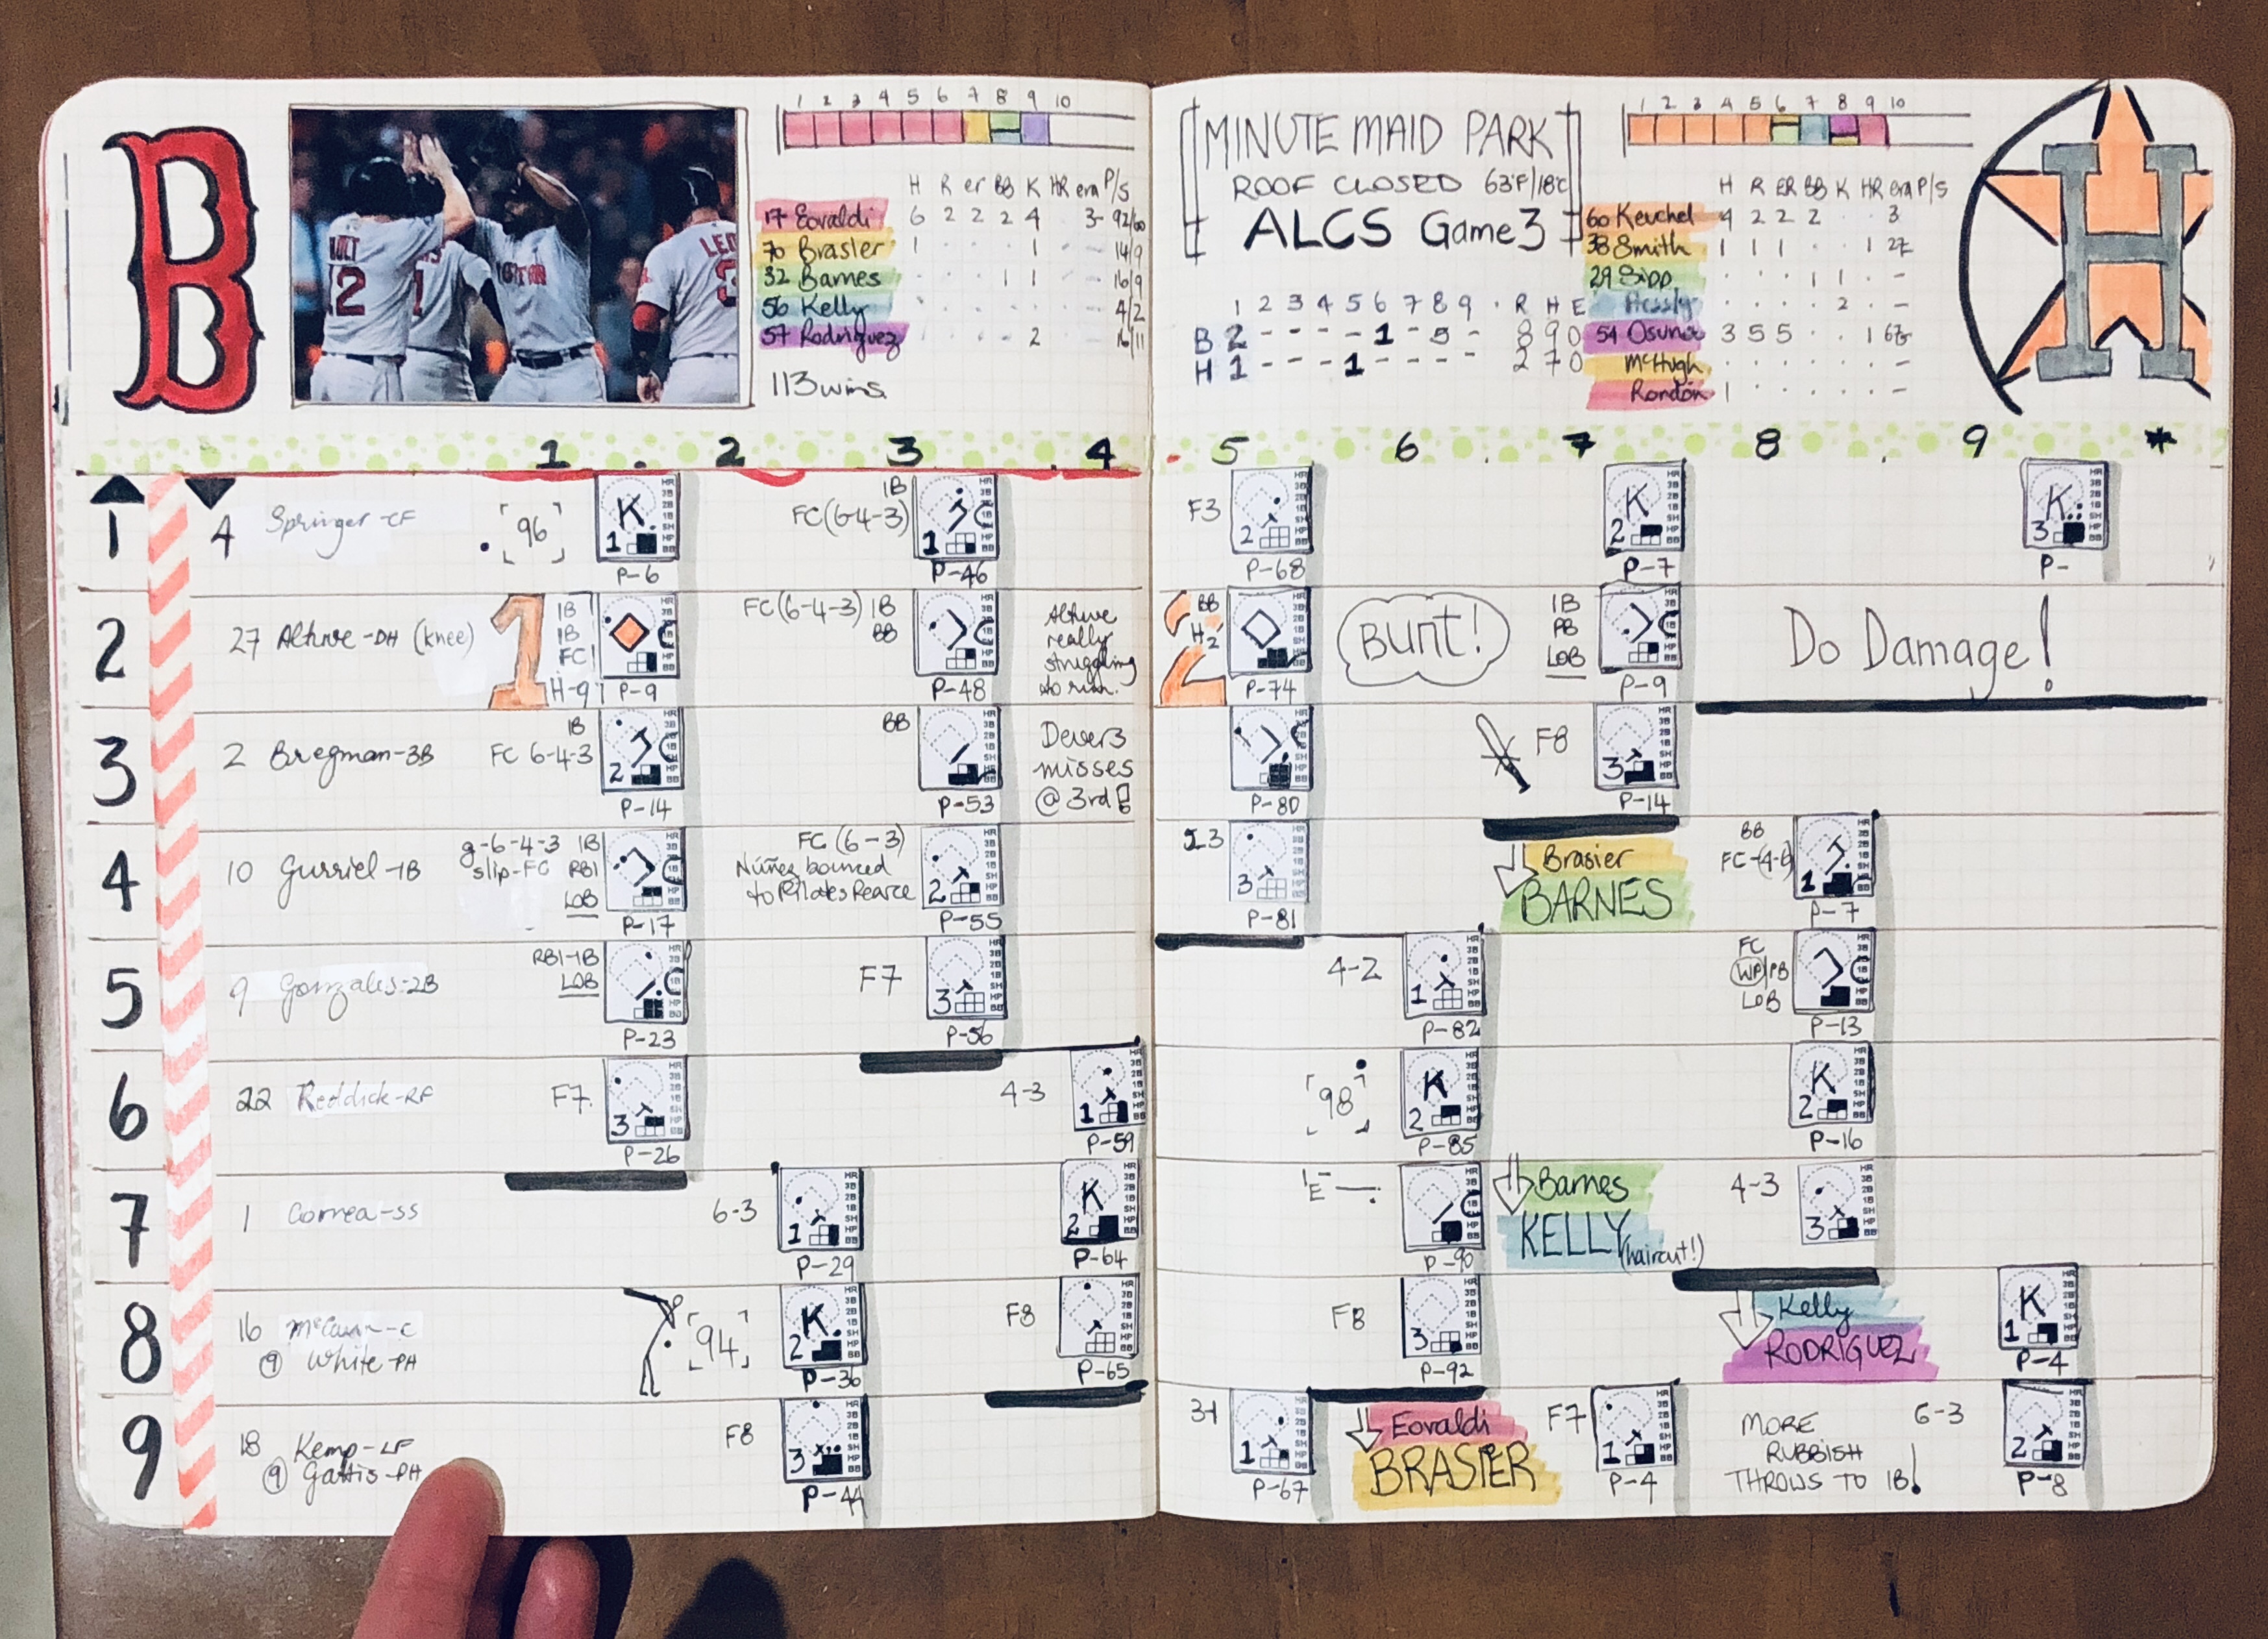 B
HOLT
12
1 2 3 4 5 6 7 8 9 10
H R er BB K HR era P/S
17 Eovaldi 6 2 2 2 4 3- 92/60
70 Brasier 1 · · · 1 14/9
32 Barnes · · · 1 1 16/9
56 Kelly · · · · · 4/2
57 Rodriguez · · · · 2 16/11
113 wins
MINUTE MAID PARK
ROOF CLOSED 63°F/18°C
ALCS Game 3
1 2 3 4 5 6 7 8 9 · R H E
B 2 - - - - 1 - 5 - 8 9 0
H 1 - - - 1 - - - - 2 7 0
1 2 3 4 5 6 7 8 9 10
H R ER BB K HR era P/S
60 Keuchel 4 2 2 2 · · 3
38 Smith 1 1 1 · · 1 27
29 Sipp · · · 1 1 · -
Pressly · · · · 2 · -
54 Osuna 3 5 5 · · 1
McHugh · · · · · · -
Rondon 1 · · · · · -
H
1 2 3 4 5 6 7 8 9 *
1
4 Springer-CF
96
K
1
P-6
1B
FC(6-4-3)
1
P-46
F3
2
P-68
K
2
P-7
K
3
P-
2
27 Altuve-DH (knee)
1
1B
1B
FC
H-9
P-9
FC(6-4-3) 1B
BB
P-48
Altuve
really
struggling
to run.
2
BB
H2
P-74
Bunt!
1B
PB
LOB
P-9
Do Damage!
3
2 Bregman-3B
1B
FC 6-4-3
2
P-14
BB
P-53
Devers
misses
@ 3rd!
P-80
F8
3
P-14
4
10 Gurriel-1B
g-6-4-3 1B
slip-FC RBI
LOB
P-17
FC (6-3)
Núñez bounced
to Pilates Pearce
2
P-55
3
P-81
Brasier
BARNES
BB
1
P-7
5
9 Gonzales-2B
RBI-1B
LOB
P-23
F7
3
P-56
4-2
1
P-82
FC
WP/PB
LOB
P-13
6
22 Reddick-RF
F7
3
P-26
4-3
1
P-59
98
K
2
P-85
K
2
P-16
7
1 Correa-SS
6-3
1
P-29
K
2
P-64
P-90
Barnes
KELLY
(haircut!)
4-3
3
8
16 McCann-C
9 White-PH
94
K
2
P-36
F8
P-65
F8
3
P-92
Kelly
RODRIGUEZ
K
1
P-4
9
18 Kemp-LF
9 Gattis-PH
F8
3
P-44
1
P-67
Eovaldi
BRASIER
F7
1
P-4
MORE
RUBBISH
THROWS TO 1B!
6-3
2
P-8